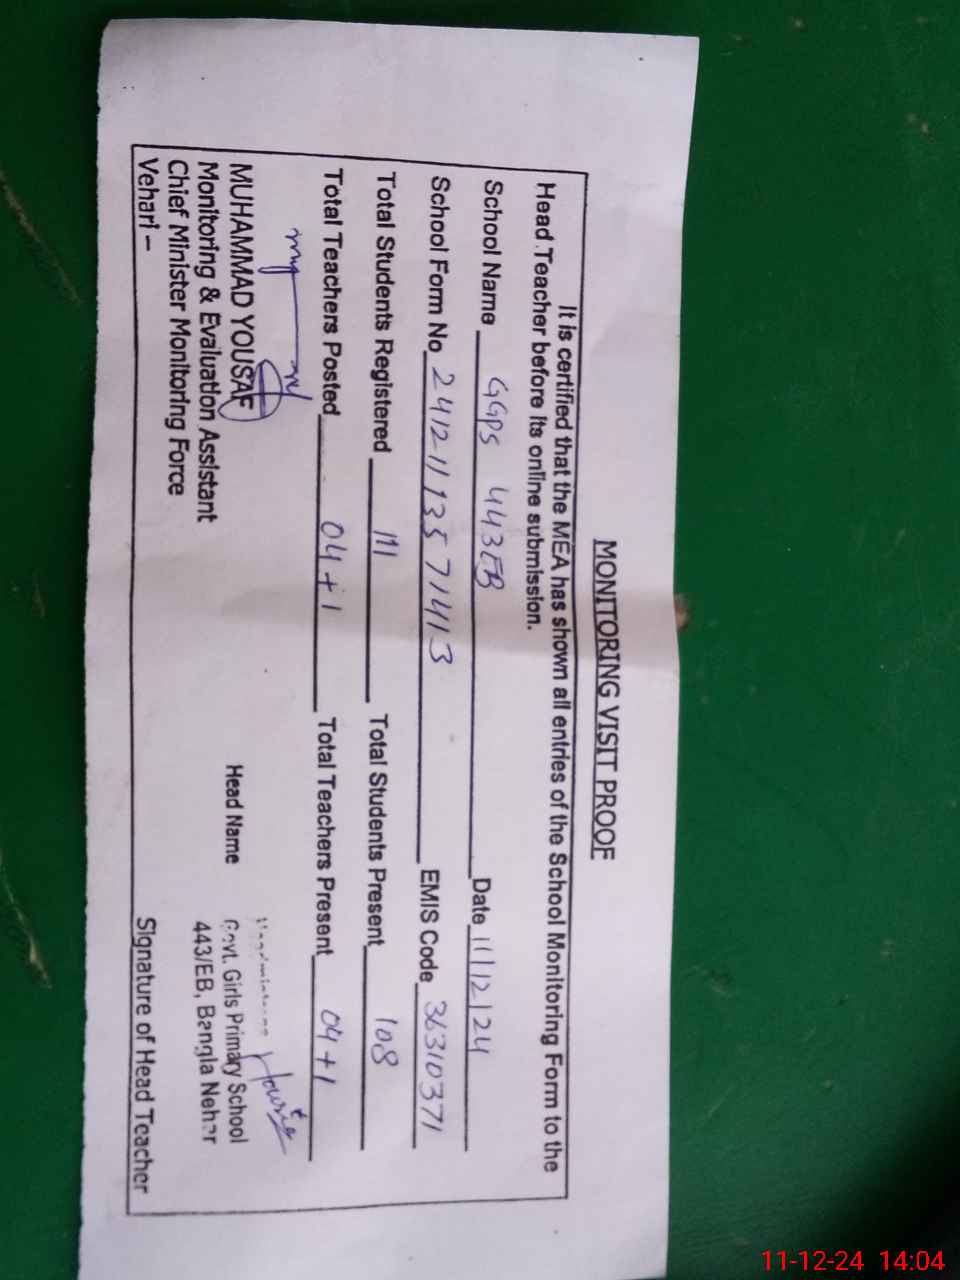 MONITORING VISIT PROOF
It is certified that the MEA has shown all entries of the School Monitoring Form to the
Head Teacher before its online submission.
School Name GGPS 443EB Date 11/12/24
School Form No 24121113571413 EMIS Code 36310371
Total Students Registered 111 Total Students Present 108
Total Teachers Posted 04+1 Total Teachers Present 04+1
MUHAMMAD YOUSAF
Monitoring & Evaluation Assistant
Chief Minister Monitoring Force
Vehari –
Head Name
Headmistress
Govt. Girls Primary School
443/EB, Bangla Nehar
Signature of Head Teacher
11-12-24 14:04